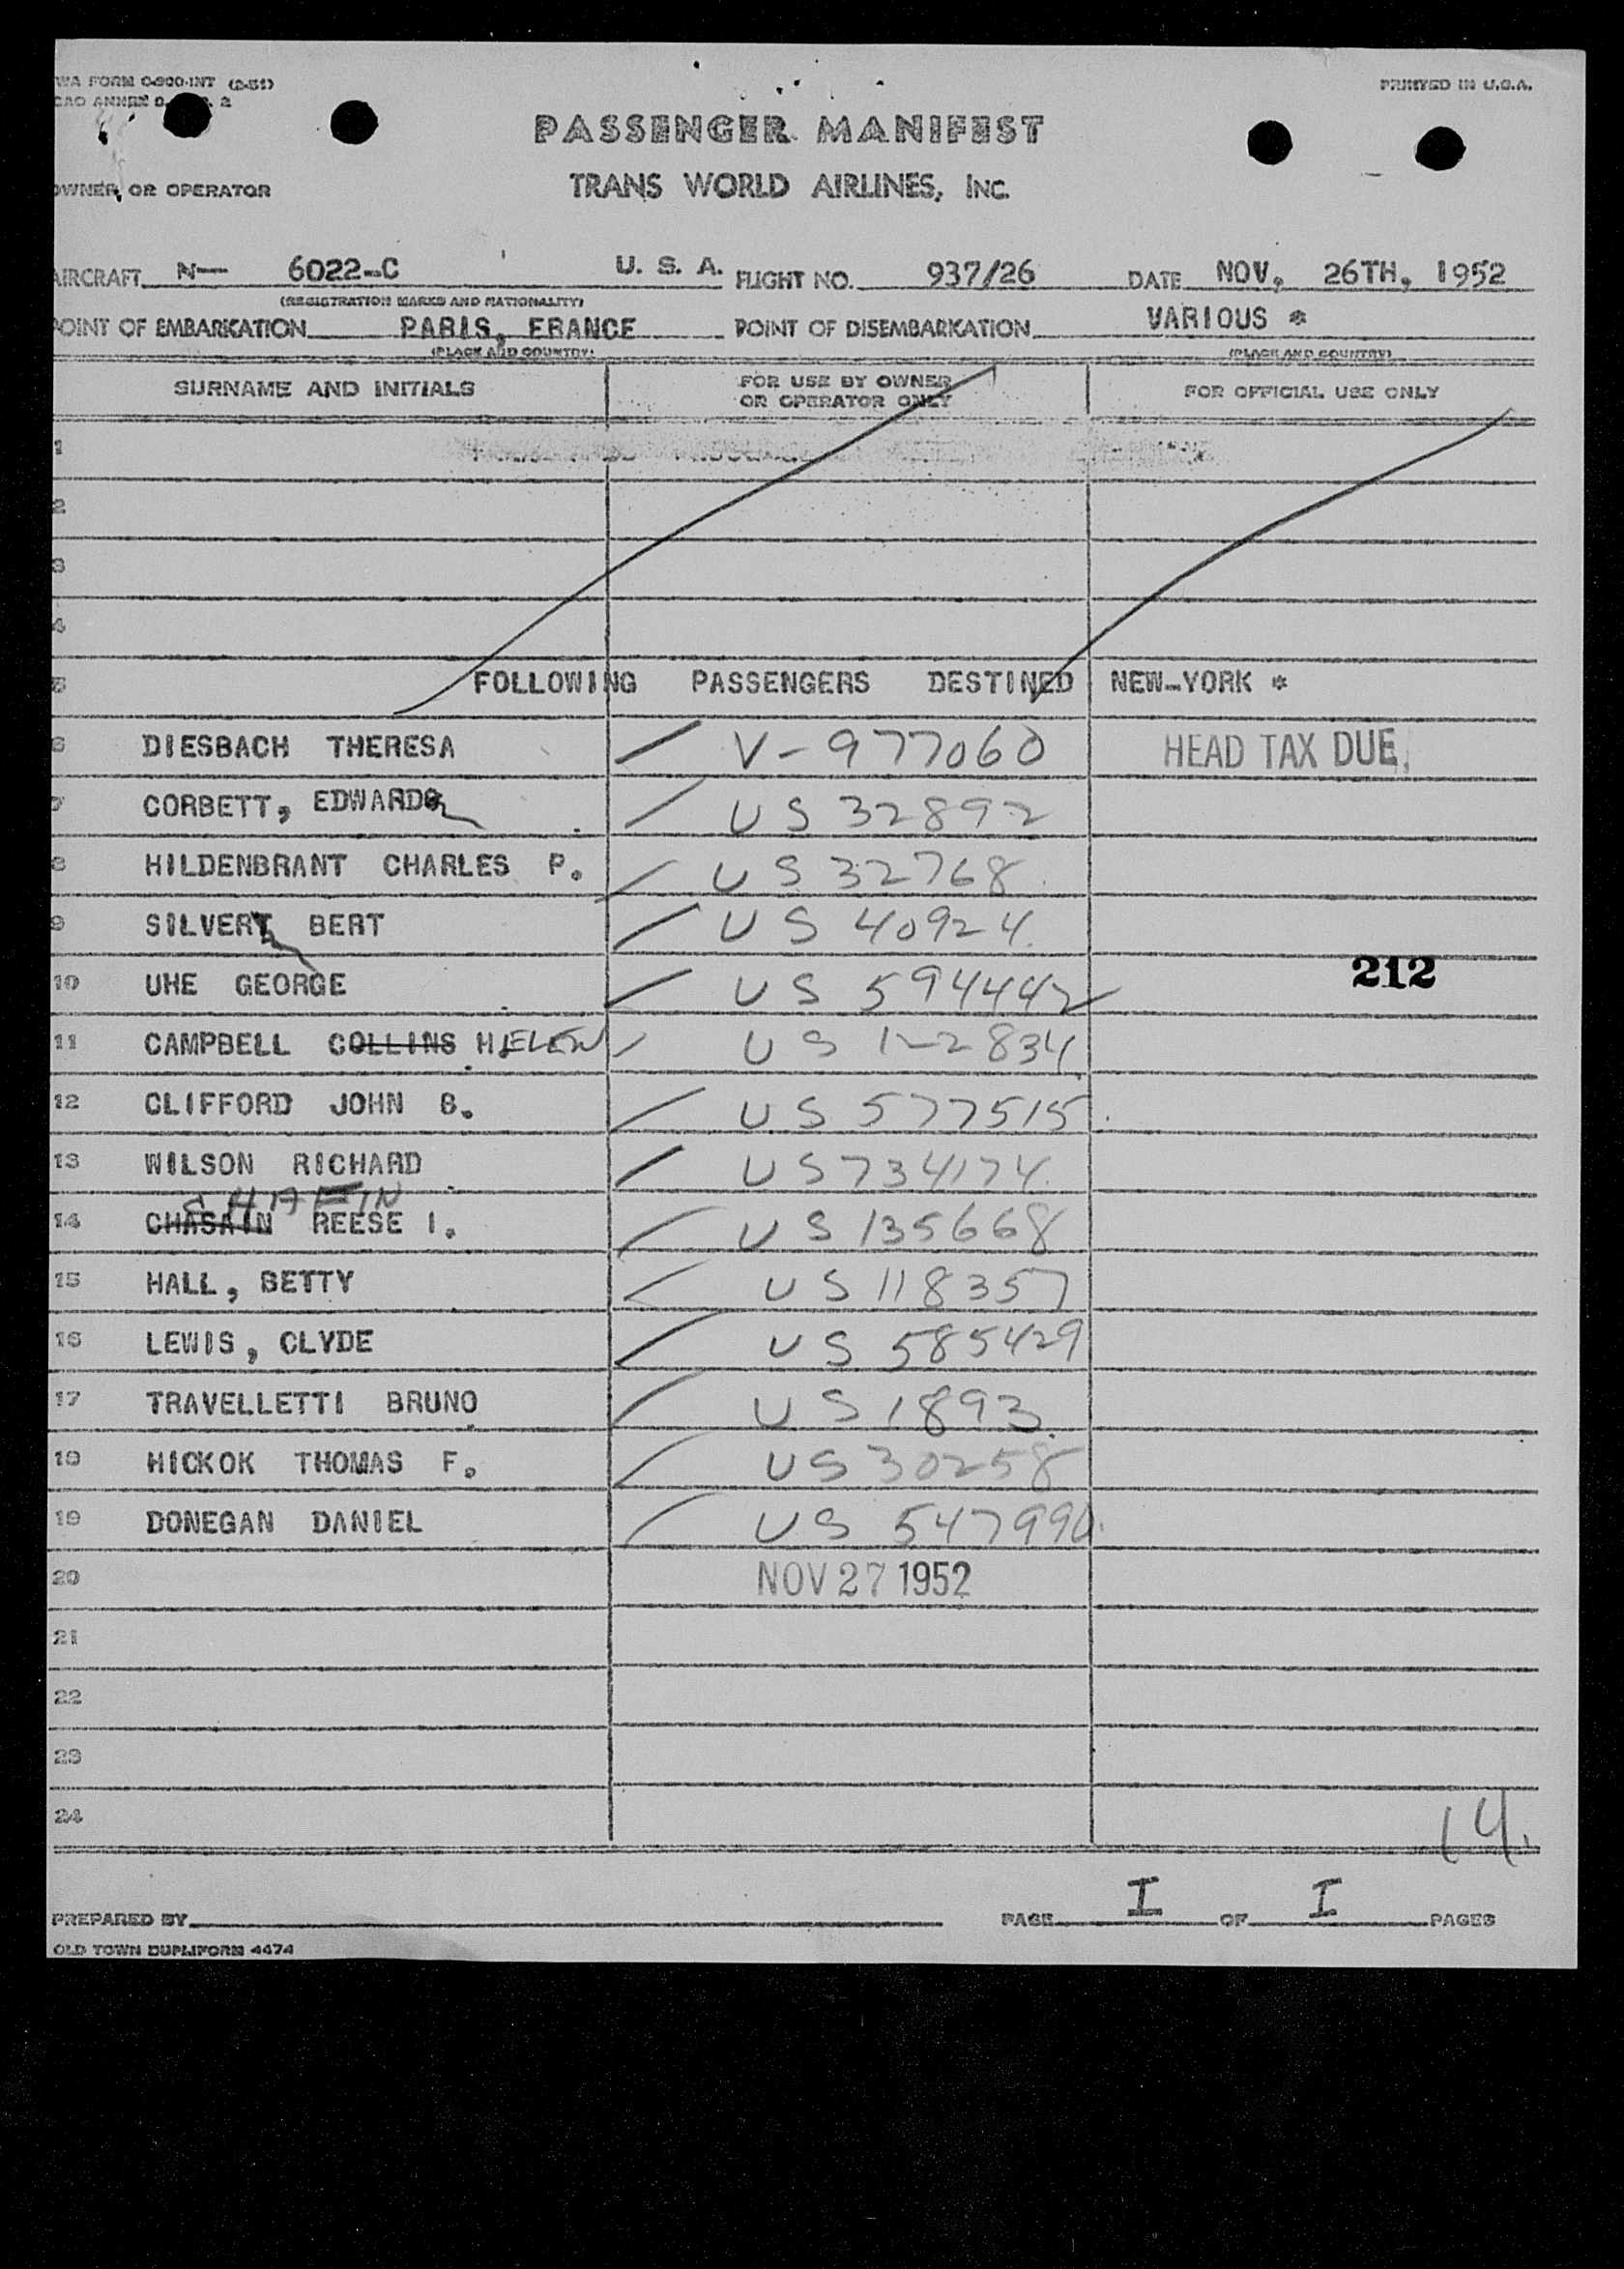 WA FORM O-900-INT (2-51)
PRINTED IN U.S.A.
CAO ANNEX 9, 2
PASSENGER MANIFEST
OWNER OR OPERATOR
TRANS WORLD AIRLINES, INC.
AIRCRAFT N— 6022-C U. S. A. FLIGHT NO. 937/26 DATE NOV, 26TH, 1952
(REGISTRATION MARKS AND NATIONALITY)
POINT OF EMBARKATION PARIS, FRANCE POINT OF DISEMBARKATION VARIOUS *
(PLACE AND COUNTRY) (PLACE AND COUNTRY)
SURNAME AND INITIALS FOR USE BY OWNER OR OPERATOR ONLY FOR OFFICIAL USE ONLY
1
2
3
4
5 FOLLOWING PASSENGERS DESTINED NEW-YORK *
6 DIESBACH THERESA V-977060 HEAD TAX DUE
7 CORBETT, EDWARD US 32892
8 HILDENBRANT CHARLES P. US 32768
9 SILVERT BERT US 40924
10 UHE GEORGE US 594442 212
11 CAMPBELL COLLINS HELEN US 122834
12 CLIFFORD JOHN B. US 577515
13 WILSON RICHARD US 734174
CHAFIN
14 CHASAIN REESE I. US 135668
15 HALL, BETTY US 118357
16 LEWIS, CLYDE US 585429
17 TRAVELLETTI BRUNO US 1893
18 HICKOK THOMAS F. US 30258
19 DONEGAN DANIEL US 547990
20 NOV 27 1952
21
22
23
24 14.
PREPARED BY PAGE I OF I PAGES
OLD TOWN DUPLIFORM 4474